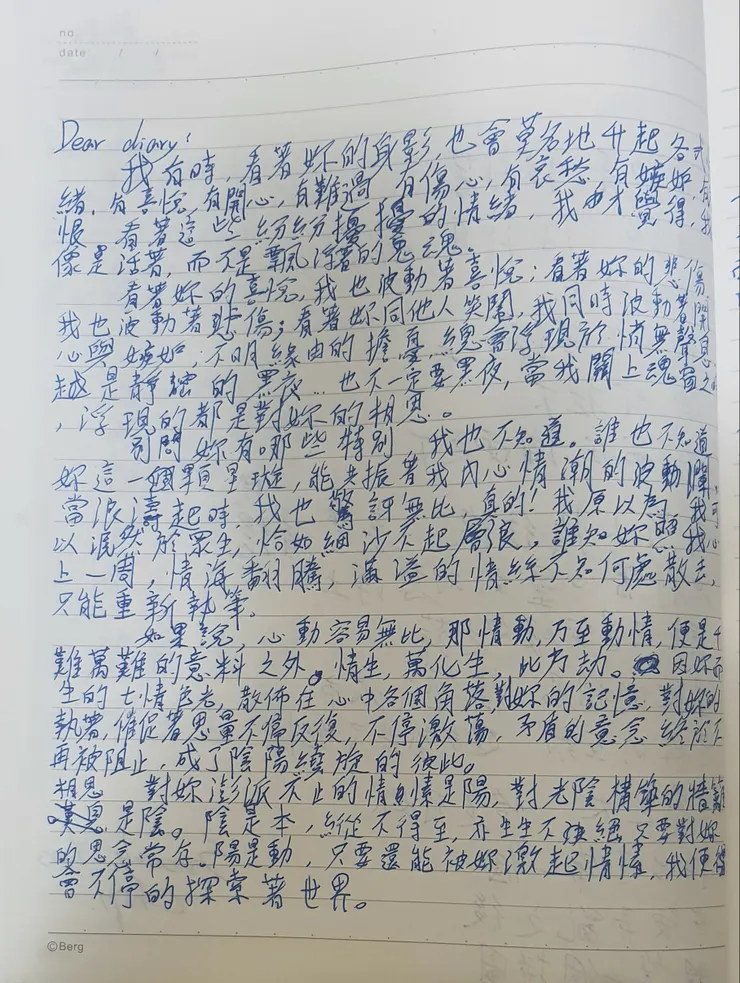 no
date: / /
Dear diary:
我有時,看著妳的身影也會莫名地升起各
緒,有喜悅,有開心,有難過,有傷心,有哀愁,有嫉妒,有
恨 看著這些紛紛擾擾的情緒,我才覺得,我
像是活著,而不是飄浮著的鬼魂。
看著妳的喜悅,我也波動著喜悅;看著妳的悲傷
我也波動著悲傷;看著妳同他人笑鬧,我同時波動著開
心與嫉妒,不明緣由的擔憂,總會浮現於悄無聲息
越是靜謐的黑夜…也不一定要黑夜,當我關上魂窗之
,浮現的都是對妳的相思。
別問妳有哪些特別 我也不知道。誰也不知道
妳這一個顆星璇,能共振著我內心情潮的波動
當浪濤起時,我也驚訝無比,真的!我原以為,我可
以泯然於眾生,恰如細沙不起層浪,誰知妳 我心
上一周,情海翻騰,滿溢的情絲不知何處散去,
只能重新執筆。
如果說,心動容易無比,那情動,乃至動情,便是千
難萬難的意料之外。情生,萬化生,此為劫。因妳而
生的七情色光,散佈在心中各個角落,對妳的記憶,對妳的
執著,催促著思量不停反復,不停激蕩,矛盾的意念終於不
再被阻止,成了陰陽繞旋的彼此。
相思 對妳澎派不止的情愫是陽,對光陰構築的牆籬
是陰。陰是本,縱不得至,亦生生不絕 只要對妳
的思念常存。陽是動,只要還能被妳激起情愫,我便
會不停的探索著世界。
©Berg